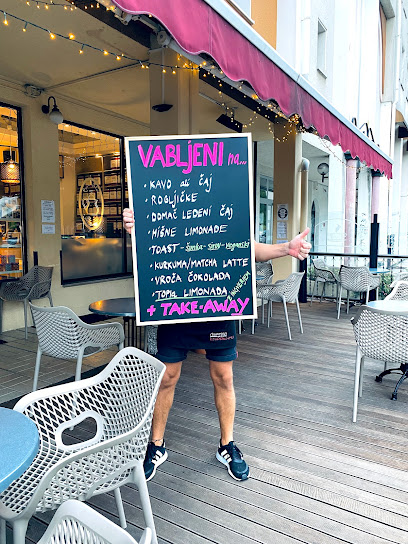 VABLJENI na...
• KAVO ali ČAJ
• ROGLJIČKE
• DOMAČ LEDENI ČAJ
• HIŠNE LIMONADE
• TOAST - Šunka - Sir - Veganski
• KURKUMA/MATCHA LATTE
• VROČA ČOKOLADA
• TOPLA LIMONADA
+ TAKE-AWAY